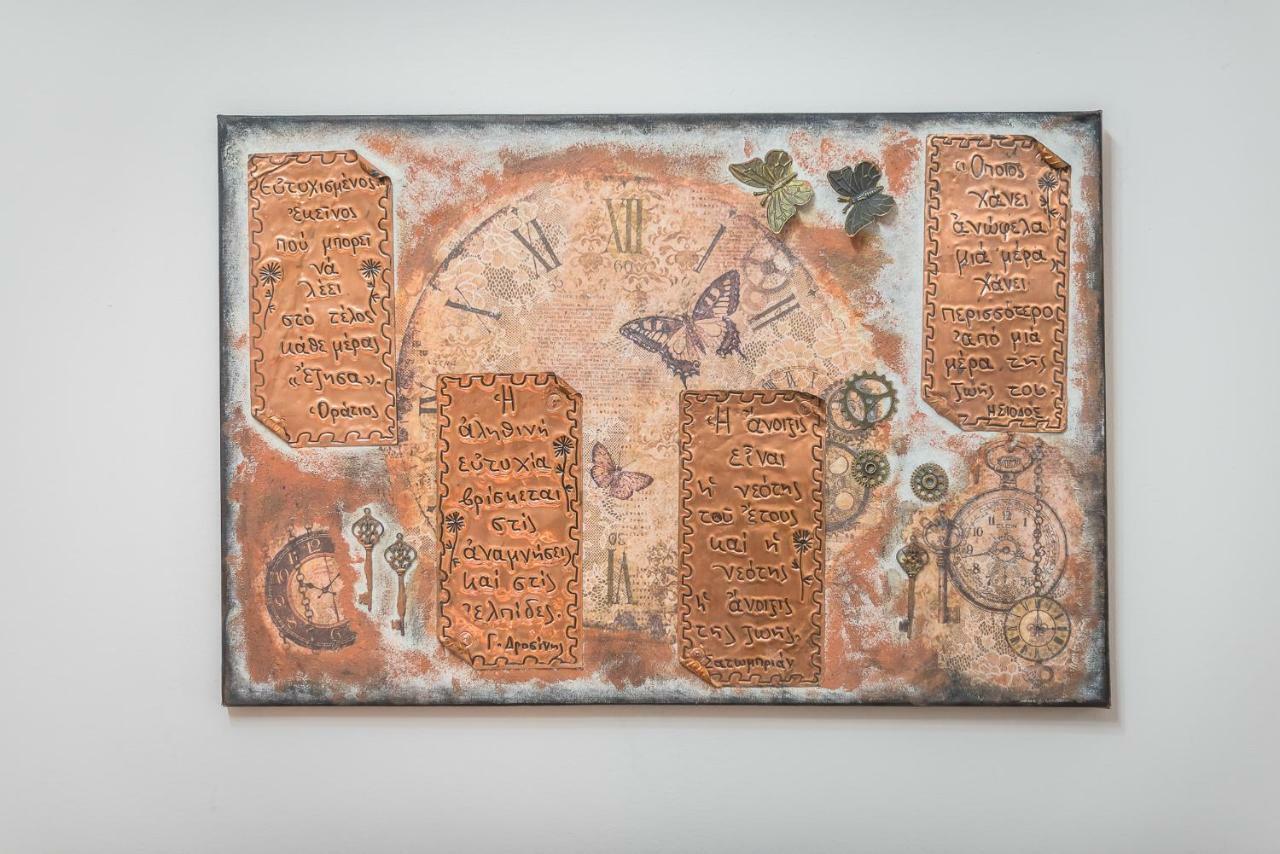 Εὐτυχισμένος
ἐκεῖνος
πού μπορεῖ
νά
λέει
στό τέλος
κάθε μέρας
«ἔζησα».
Ὁράτιος
Ἡ
ἀληθινή
εὐτυχία
βρίσκεται
στίς
ἀναμνήσεις
καί στίς
ἐλπίδες.
Γ. Δροσίνης
Ἡ ἄνοιξις
εἶναι
ἡ νεότης
τοῦ ἔτους
καί ἡ
νεότης
ἡ ἄνοιξις
τῆς ζωῆς.
Σατωμπριάν
Ὅποιος
χάνει
ἀνώφελα
μιά μέρα
χάνει
περισσότερο
ἀπό μιά
μέρα τῆς
ζωῆς του
ΗΣΙΟΔΟΣ
XI
XII
I
X
II
60
VI
12